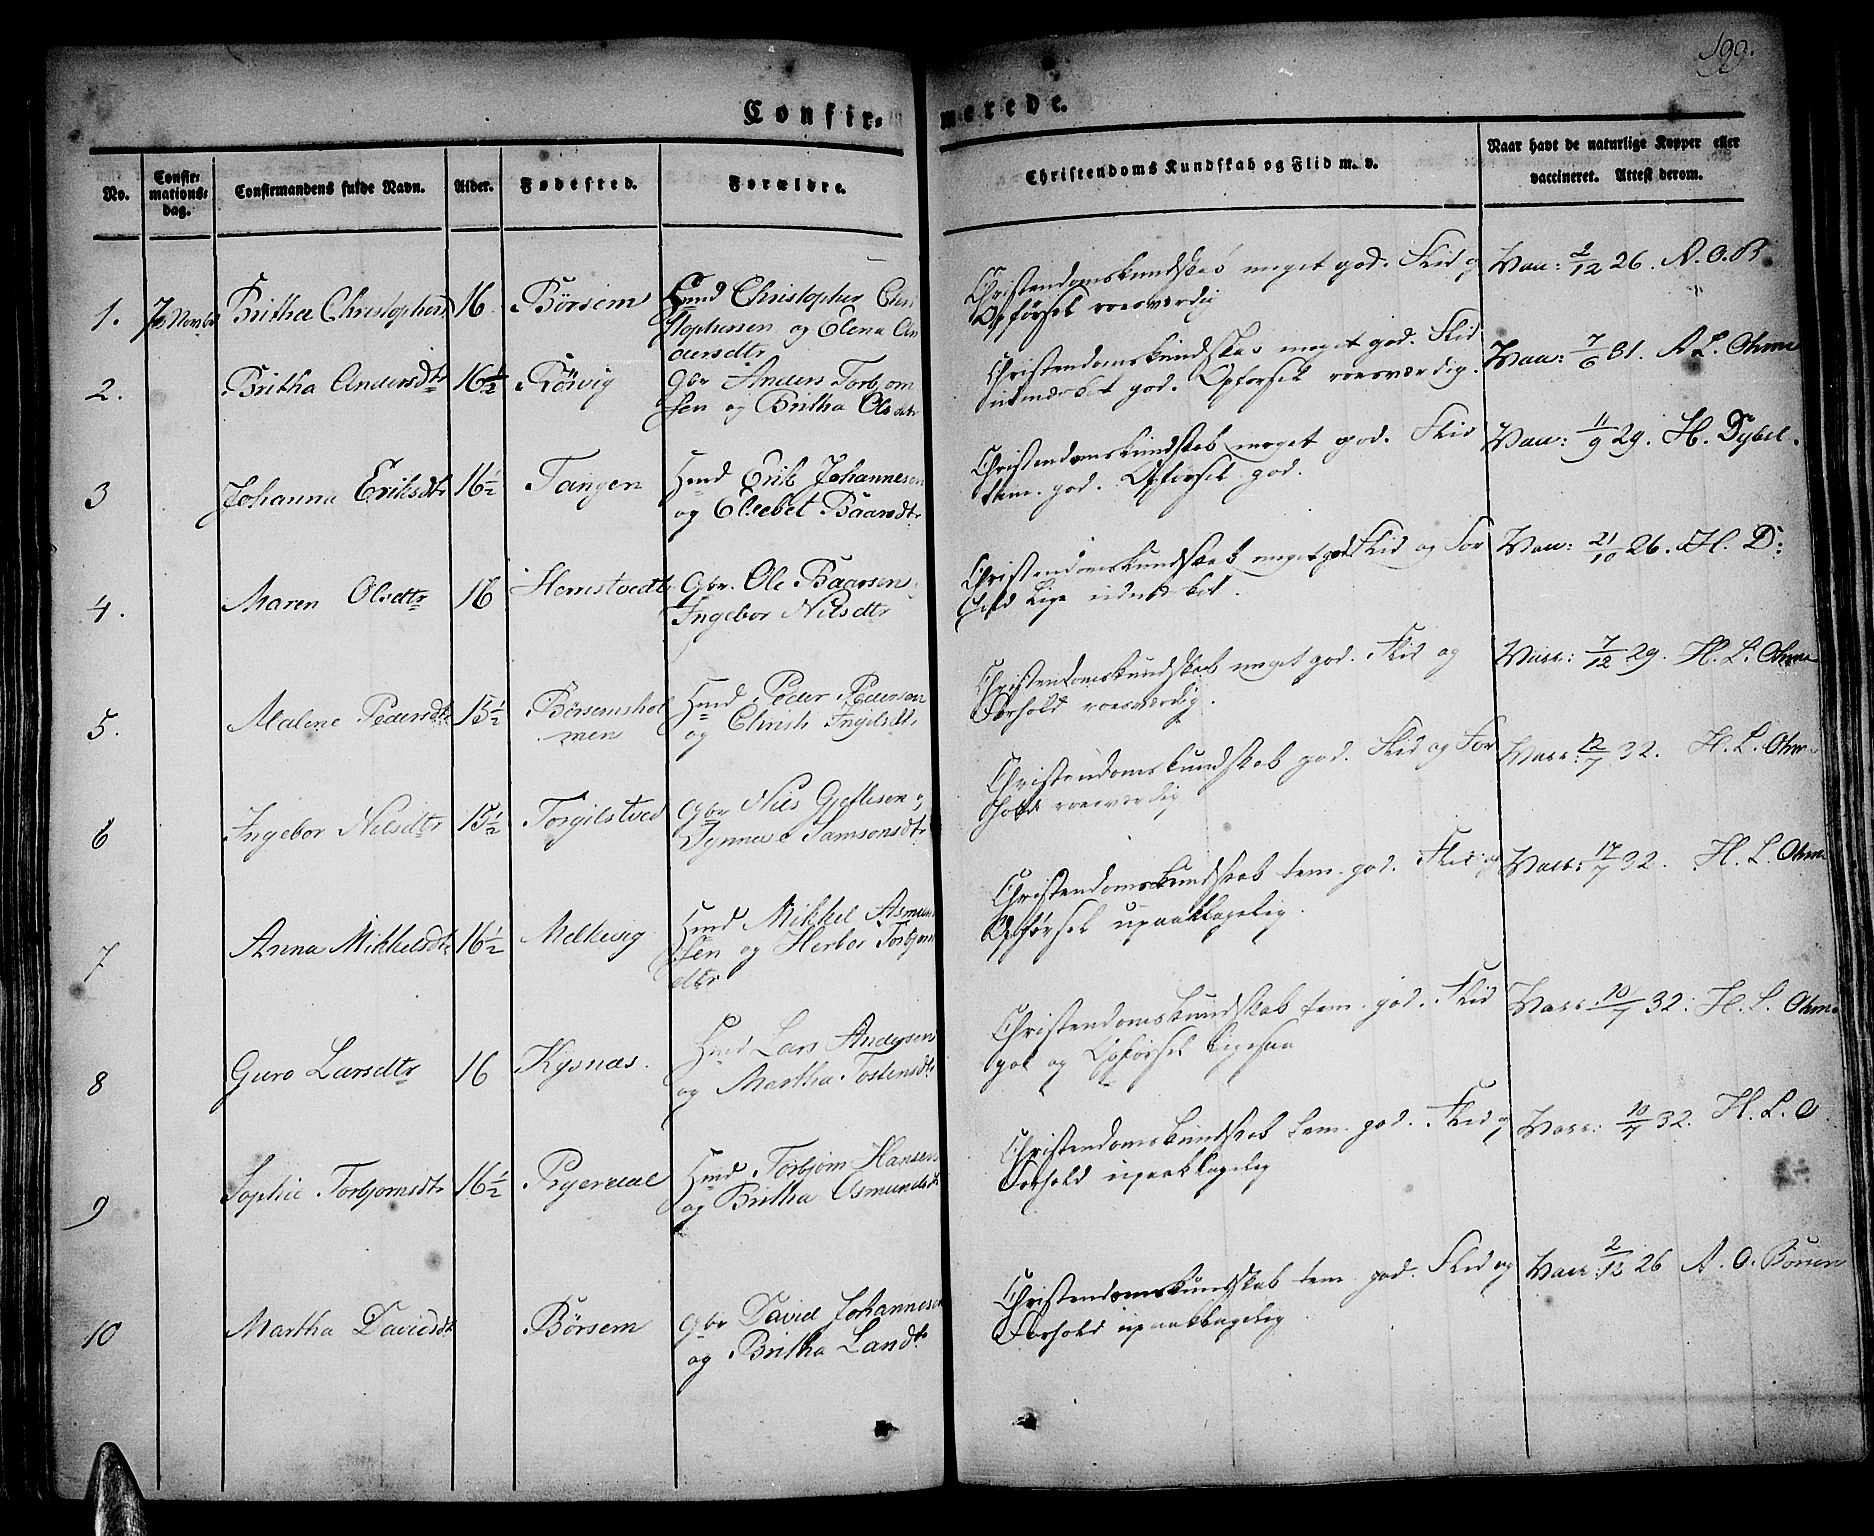 199.
Confir- merede.
No.
Confir-
mations-
dag.
Confirmandens fulde Navn.
Alder.
Fødested.
Forældre.
Christendoms Kundskab og Flid m. v.
Naar havt de naturlige Kopper eller
vaccineret. Attest derom.
1. Novbr Britha Christophers 16 Börsem Hmd Christopher Chri
stophersen og Elena An
dersdtr
Christendomskundskab meget god. Flid og
Opförsel roesværdig
Vac: 2/12 26. A. O. B
2. Britha Andersdtr 16½ Rörvig Gbr Anders Torbjorn
sen og Britha Olsdtr
Christendomskundskab meget god. Flid
udmærket god. Opförsel roesværdig.
Vac: 7/6 31. H. L. Ohm
3 Johanna Eriksdtr 16½ Tangen Hmd Erik Johannesen
og Elsebet Baarsdtr
Christendomskundskab meget god. Flid
tem. god. Opförsel god.
Vac: 11/9 29. H. Dybel.
4. Maren Olsdtr 16 Hemstvedt Gbr. Ole Baarsen
Ingebor Nilsdtr
Christendomskundskab meget god Flid og For
hold lige
Vac: 21/10 26. H. D:
5. Malene Pedersdtr 15½ Börsemshol
men
Hmd Peder Pedersen
og Christi Ingelsdtr
Christendomskundskab meget god. Flid og
Forhold roesværdig.
Vacc: 7/12 29. H. L. Ohm
6 Ingebor Nilsdtr 15½ Torgilstved Gbr Nils Gjetlesen og
Synneve Samsonsdtr
Christendomskundskab god. Flid og For
hold roesværdig
Vacc: 12/7 32. H. L. Ohm
7 Anna Mikkelsdtr 16½ Melkevig Hmd Mikkel Asmun
sen og Herbor Torbjorn
dtr
Christendomskundskab tem. god. Flid og
Opförsel upaaklagelig.
Vacc: 17/7 32. H. L. Ohm
8 Guro Larsdtr 16 Kysnæs. Hmd Lars Andersen
og Martha Tostensdtr
Christendomskundskab tem. god. Flid
god og Opförsel ligesaa
Vacc: 10/7 32. H. L. Ohm
9 Sophie Torbjornsdtr 16½ Ryerdal Hmd Torbjorn Hansen
og Britha Osmundsdtr
Christendomskundskab tem. god. Flid og
Forhold upaaklagelig
Vacc: 10/7 32. H. L. O.
10 Martha Davidsdtr Börsem Gbr David Johannesen
og Britha Larsdtr
Christendomskundskab tem. god. Flid og
Forhold upaaklagelig
Vacc: 2/12 26 A. O.